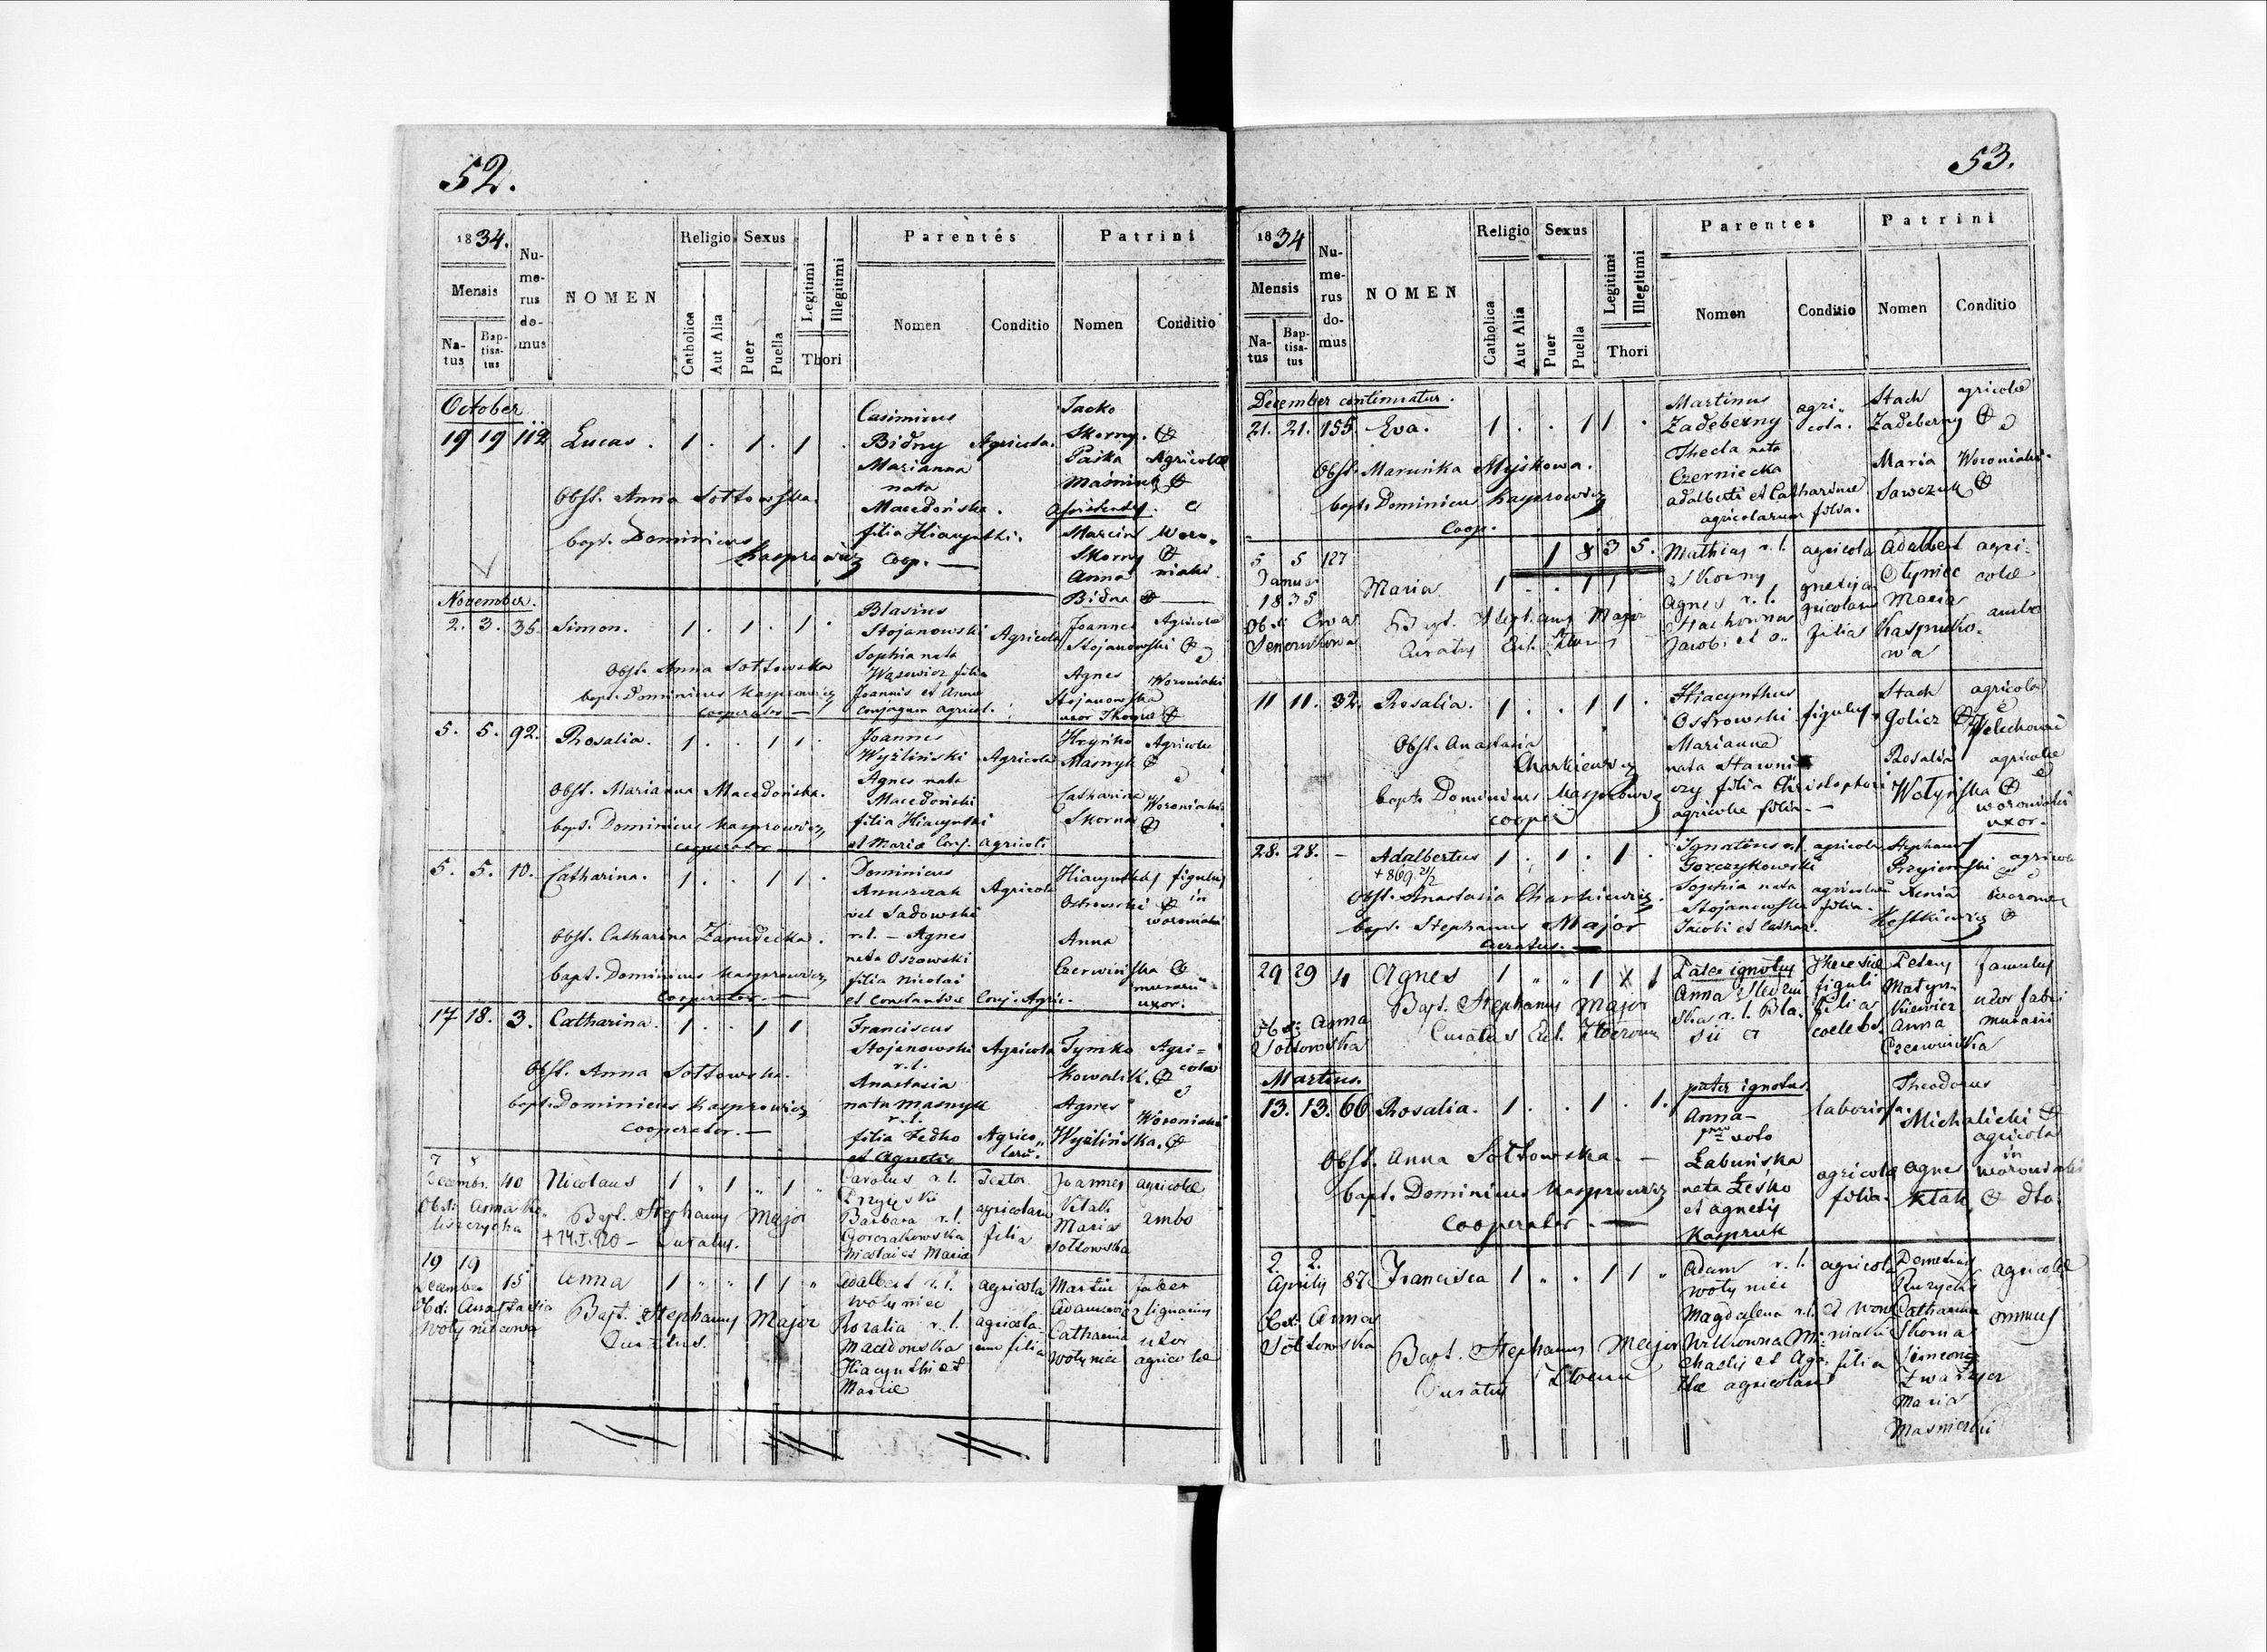 52.
1834.
Mensis
Na-
tus
Bap-
tisa-
tus
Nu-
me-
rus
do-
mus
NOMEN
Religio
Catholica
Aut Alia
Sexus
Puer
Puella
Legitimi
Illegitimi
Thori
Parentes
Nomen
Conditio
Patrini
Nomen
Conditio
October
19 19 112 Lucas. 1 . 1 . 1 .
Casimirus
Bidny Agricola.
Marianna
nata
Macedońska.
filia Hiacynthi.
Jacko
Skorny.
Paśka Agricolae
Maśniuk
Assistentes.
Marcin Woro-
Skorny
Anna niaki
Bidna
Obst. Anna Sottowska.
bapt. Dominicus
Kasprowicz Coop. —
November.
2. 3. 35. Simon. 1 . 1 . 1 .
Blasius
Stojanowski Agricola
Sophia nata
Wąsowicz filia
Joannis et Annae
conjugum agricol.
Joannes Agricolae
Stojanowski
Agnes Woroniaki
Stojanowska
uxor
Obst. Anna Sottowska
bapt. Dominicus Kasprowicz
cooperator —
5. 5. 92. Rosalia. 1 . . 1 1 .
Joannes
Wyźliński Agricola
Agnes nata
Macedoński
filia Hiacynthi
et Maria Conj. Agricoli
Hryńko Agricolae
Masnyk
Catharina Woroniaki
Skorna
Obst. Marianna Macedońska.
bapt. Dominicus Kasprowicz
cooperator —
5. 5. 10. Catharina. 1 . . 1 1 .
Dominicus
Anuszczak Agricola
vel Sadowski
r.l. — Agnes
nata Oszowski
filia Nicolai
et Constantiae Conj. Agric.
Hiacynthus figulus
Ostrowski in
woroniaki
Anna
Czerwińska
murarii
uxor.
Obst. Catharina Zarudecka.
bapt. Dominicus Kasprowicz
cooperator. —
17 18. 3. Catharina. 1 . . 1 1
Franciscus
Stojanowski Agricola
r.l.
Anastasia
nata Masnyk
r.l.
filia Fedko Agrico-
et Agnetis
Tymko Agri=
Kowalik. colae
Agnes Woroniaki
Wyźlińska.
Obst. Anna Sottowska.
bapt. Dominicus Kasprowicz
cooperator. —
7 8
Decembr. 40 Nicolaus 1 " 1 " 1 "
Carolus r.l. Textor
Barbara r.l. agricolarum
Gorczakowska filia
Nicolai et Maria
Joannes agricolae
Maria ambo
Sottowska
Bapt. Stephanus Major
+ 14.I.920 — Curatus.
19 19
December 15 Anna 1 " " 1 1 "
Adalbert r.l. agricola
Wołyniec
Rozalia r.l. agricola-
Macedonska rum filia
Hiacynthi et
Mariae
Martin faber
Adamowicz lignarius
Catharina uxor
Wołyniec agricolae
Obst: Anastasia
Wołyniecowa
Bapt. Stephanus Major
Curatus.
53.
1834
Mensis
Na-
tus
Bap-
tisa-
tus
Nu-
me-
rus
do-
mus
NOMEN
Religio
Catholica
Aut Alia
Sexus
Puer
Puella
Legitimi
Illegitimi
Thori
Parentes
Nomen
Conditio
Patrini
Nomen
Conditio
December continuatur.
21. 21. 155. Eva. 1 . . 1 1 .
Martinus agri-
Zadeberny cola.
Thecla nata
Czerniecka
Adalberti et Catharinae
agricolarum filia.
Stach agricolae
Zadeberny
Maria Woroniaki.
Sawczuk
Obst. Maruńka Myśkowa.
bapt. Dominicus Kasprowicz
Coop.
1835.
5 5 127
Januar
1835 Maria 1 . . 1 1
Mathias r.l. agricola
Skorny
Agnes r.l.
Stachowna
Jacobi et filia
Adalbert agri-
Otyniec colae
Maria
Kaspruko- ambo
wa
Obst: Ewa
Bapt. Stephanus Major
Curatus
11 11. 32. Rosalia. 1 . . 1 1 .
Hiacynthus
Ostrowski figulus
Marianna
nata
filia Christophori
agricolae filia —
Stach agricola
Golicz
Rosalia agricolae
Wołyńska
woroniaki
uxor.
Obst. Anastasia
Charkiewicz
bapt. Dominicus Kasprowicz
cooper
28. 28. — Adalbertus 1 . 1 . 1 .
+869 21/2
Ignatius r.l. agricola
Gorczykowski
Sophia nata agricolae
Stojanowska filia.
Jacobi et Cathar.
Stephanus
agricolae
Xenia
Kostkiewicz
Obst. Anastasia Charkiewicz.
bapt. Stephanus Major
curatus. —
29 29 4 Agnes 1 " " 1 X 1
Pater ignotus Theresiae
Anna figuli
r.l. Bla- filia
sii et coelebs.
Petrus famulus
Matyas-
kiewicz uxor fabri
Anna murarii
Czerwinska
Obst: Anna
Sottowska
Bapt. Stephanus Major
Curatus
Martius.
13. 13. 66 Rosalia. 1 . . 1 . 1.
pater ignotus
Anna — laboriosa.
voto
Łabuńska
nata Leśko agricolae
et Agnetis filia.
Kaspruk
Theodorus
Michalicki
agricola
in
Agnes woroniaki
Ktak, dto.
Obst. Anna Sottowska. —
bapt. Dominicus Kasprowicz
cooperator. —
2. 2.
Aprilis 87 Francisca 1 " . 1 1 "
Adam r.l. agricola
Wołyniec
Magdalena r.l.
et Aga- filia
agricolarum
Demetrius
agricolae
Catharina
Skorna omnes
Simeon
Maria
Obst: Anna
Sottowska
Bapt. Stephanus Major
Curatus